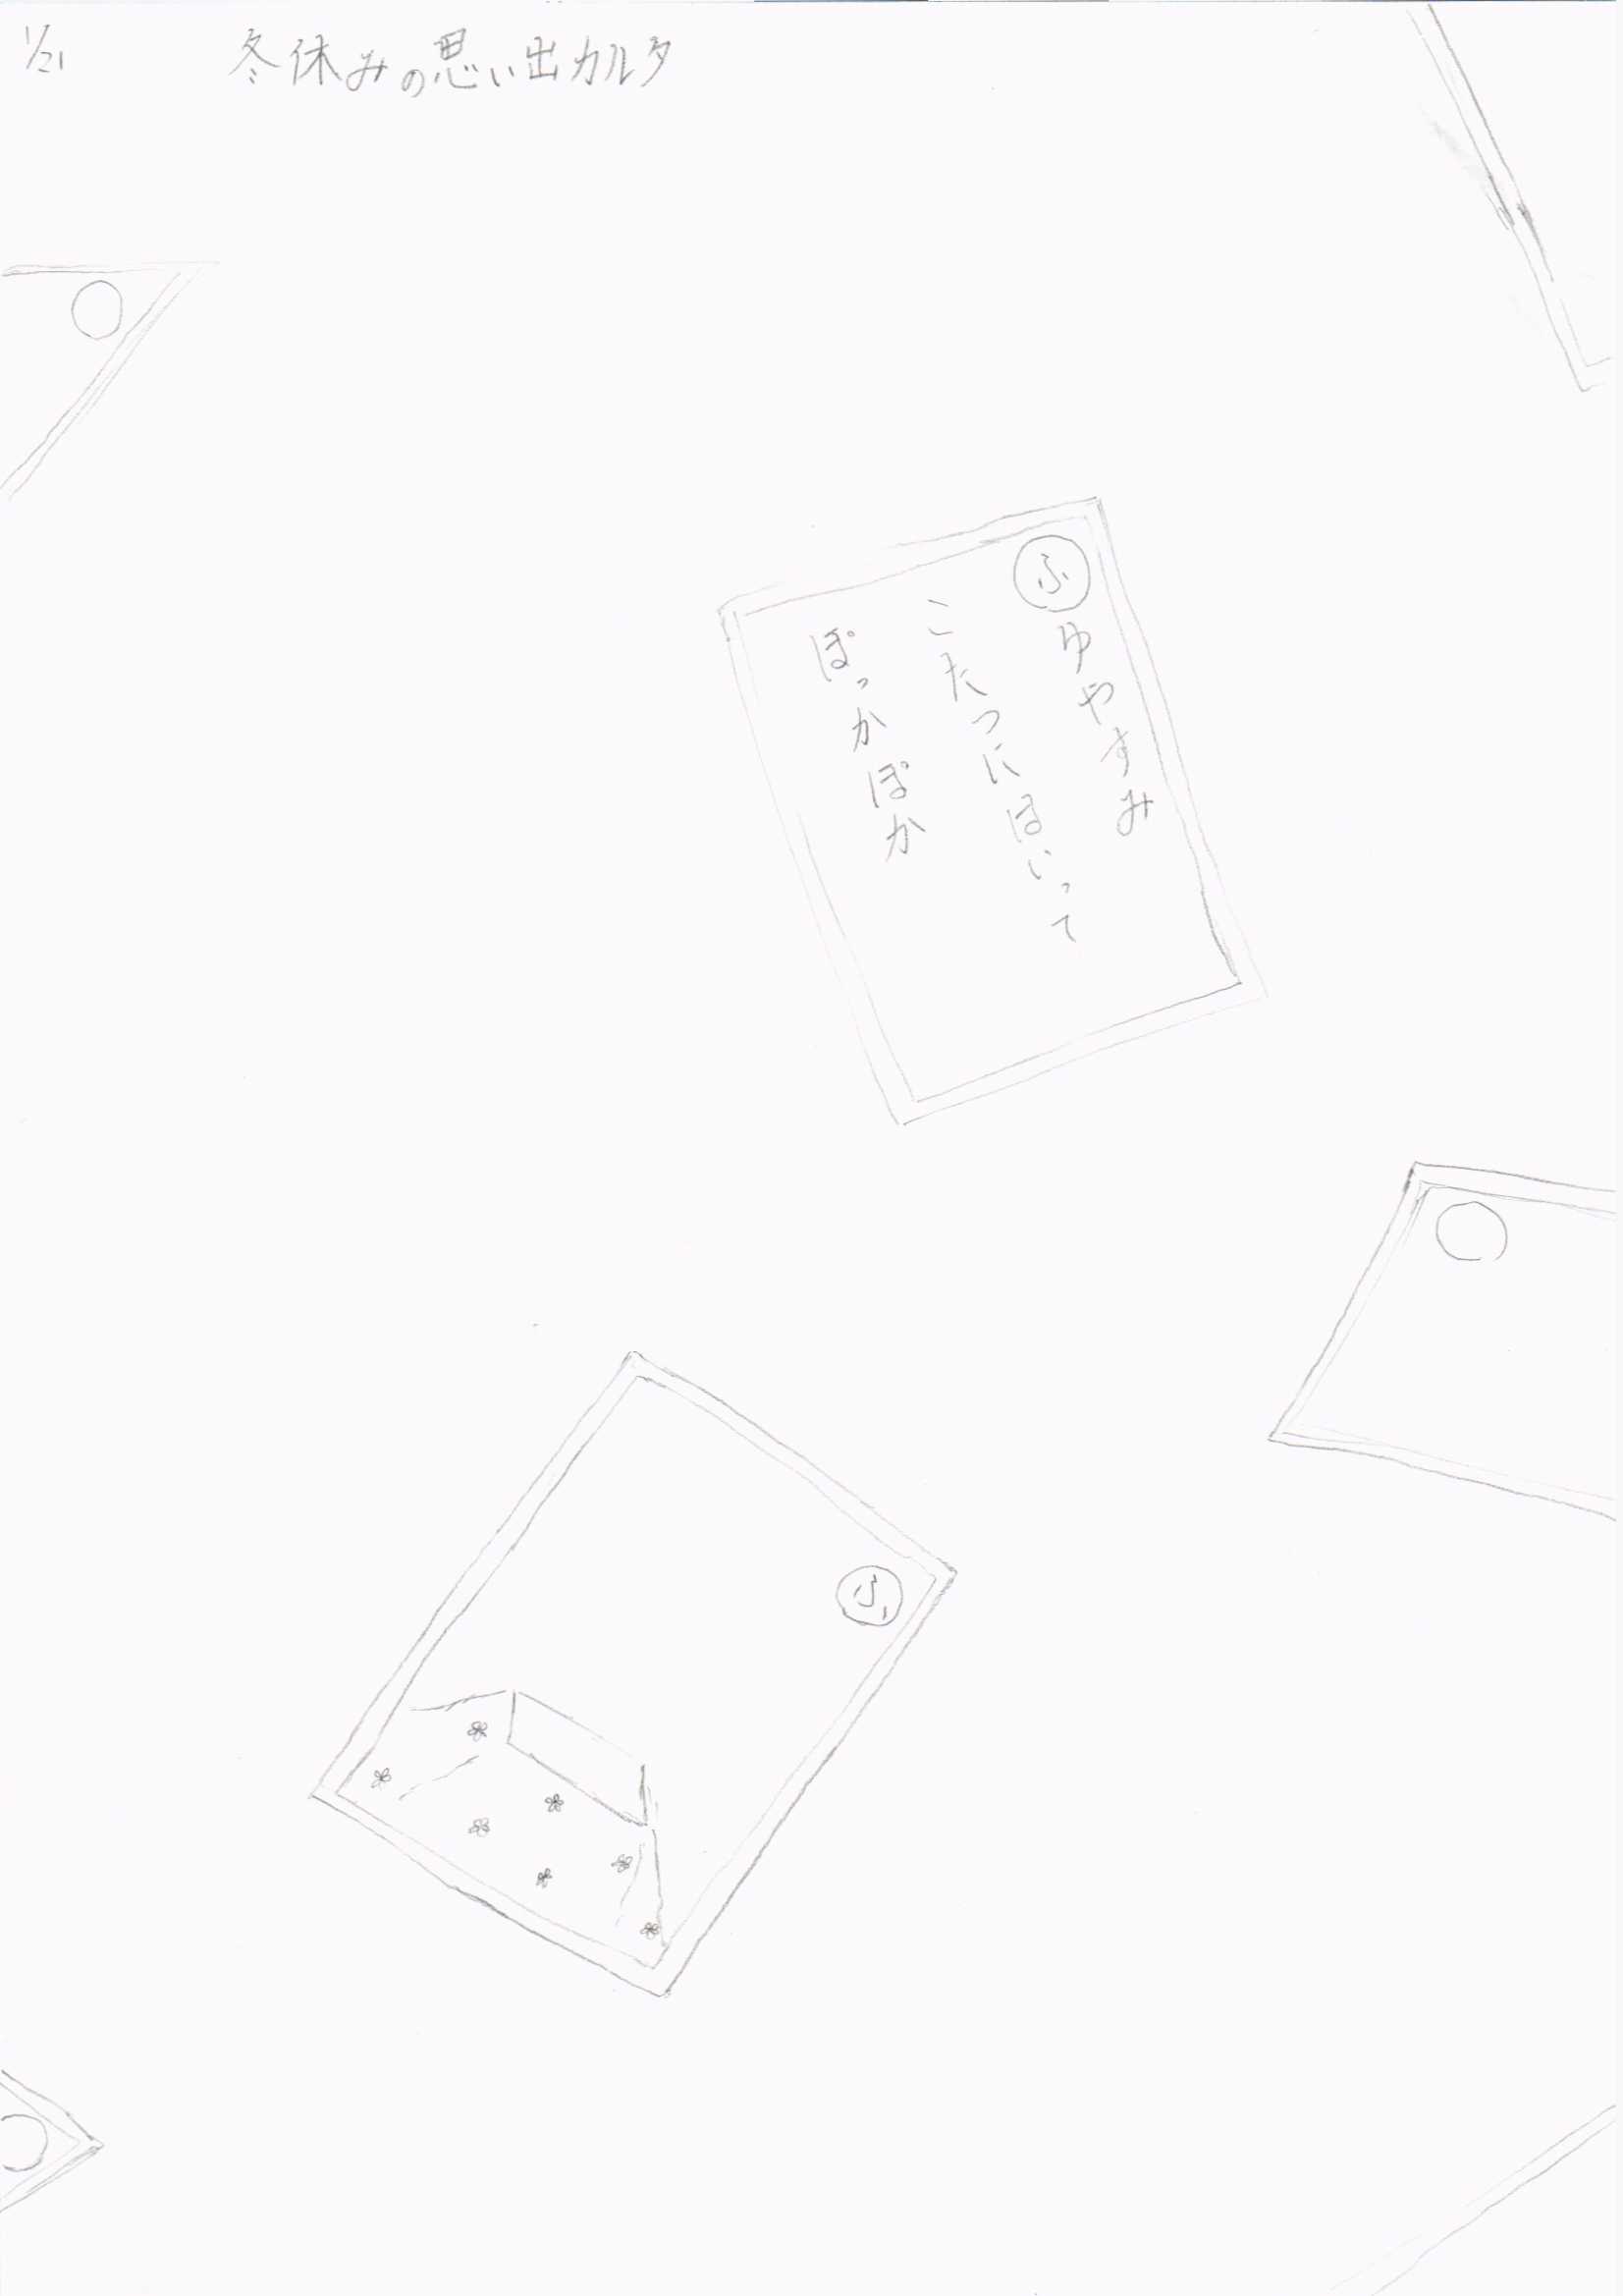 1/21
冬休みの思い出カルタ
ふゆやすみ
こたつにはいって
ぽっかぽか
ふ